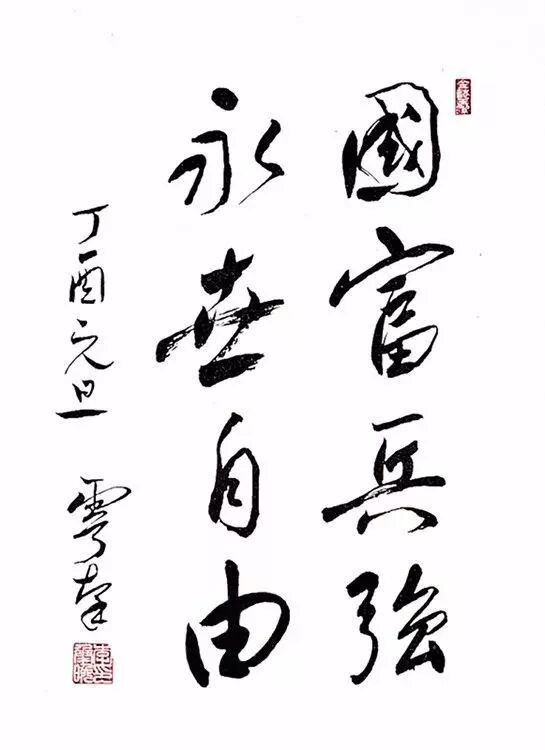 國富兵強
永世自由
丁酉元旦